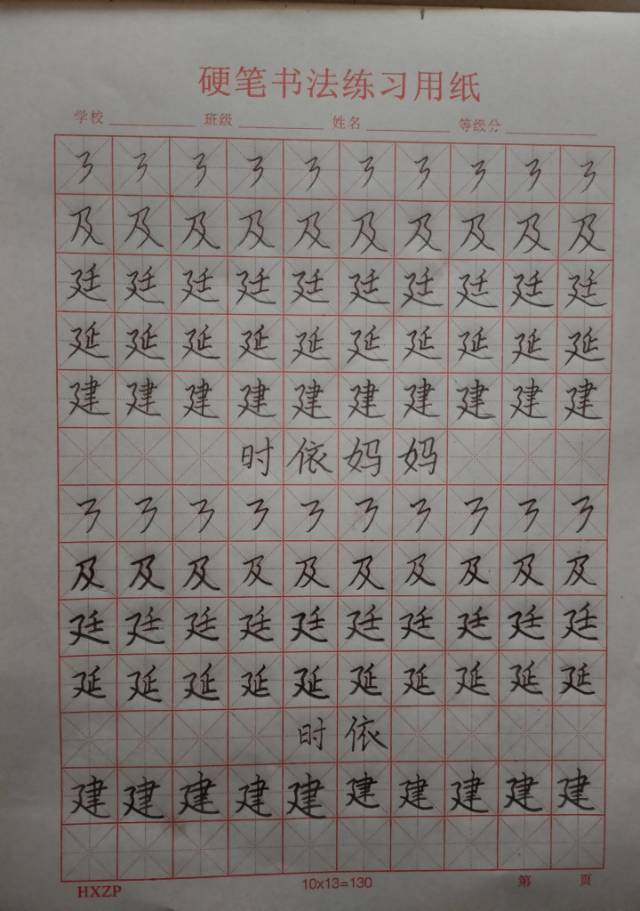 硬笔书法练习用纸
学校 班级 姓名 等级分
㇋ ㇋ ㇋ ㇋ ㇋ ㇋ ㇋ ㇋ ㇋ ㇋
及 及 及 及 及 及 及 及 及 及
廷 廷 廷 廷 廷 廷 廷 廷 廷 廷
延 延 延 延 延 延 延 延 延 延
建 建 建 建 建 建 建 建 建 建
时 依 妈 妈
㇋ ㇋ ㇋ ㇋ ㇋ ㇋ ㇋ ㇋ ㇋ ㇋
及 及 及 及 及 及 及 及 及 及
廷 廷 廷 廷 廷 廷 廷 廷 廷 廷
延 延 延 延 延 延 延 延 延 延
时 依
建 建 建 建 建 建 建 建 建 建
HXZP 10x13=130 第 页